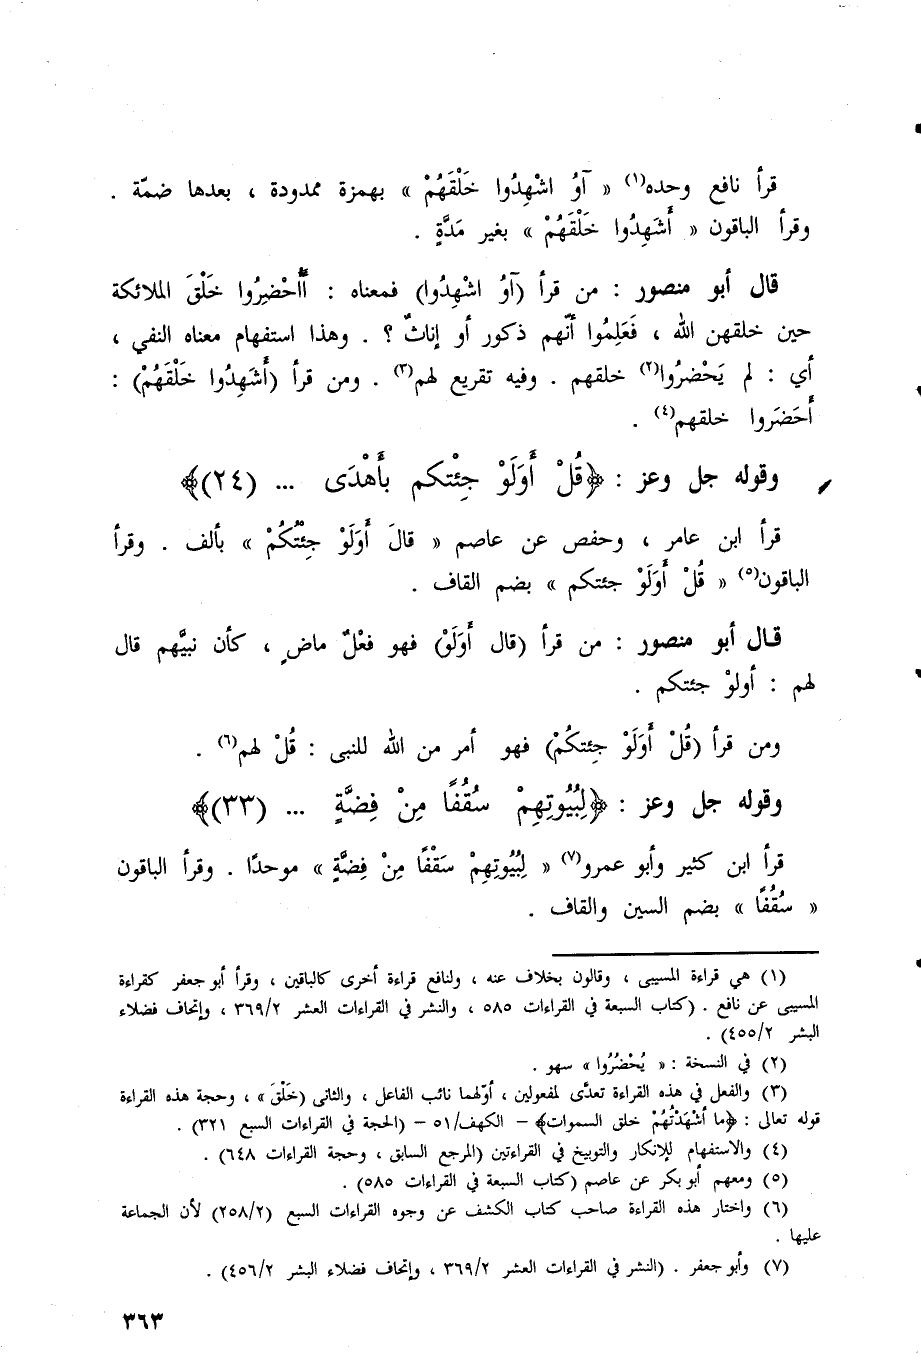 قرأ نافع وحده(١) « آوُ اشْهِدُوا خَلْقَهُمْ » بهمزة ممدودة ، بعدها ضمّة .
وقرأ الباقون « أَشَهِدُوا خَلْقَهُمْ » بغير مَدَّةٍ .
قال أبو منصور : من قرأ (آوُ اشْهِدُوا) فمعناه : أَأُحْضِرُوا خَلْقَ الملائكة
حين خلقهن الله ، فَعَلِمُوا أنّهم ذكور أو إناثٌ ؟ . وهذا استفهام معناه النفي ،
أي : لم يَحْضرُوا(٢) خلقهم . وفيه تقريع لهم(٣) . ومن قرأ (أَشَهِدُوا خَلْقَهُمْ) :
أَحَضَروا خلقهم(٤) .
وقوله جل وعز : ﴿قُلْ أَوَلَوْ جِئْتكم بأَهْدَى ... (٢٤)﴾
قرأ ابن عامر ، وحفص عن عاصم « قالَ أَوَلَوْ جِئْتُكُمْ » بألف . وقرأ
الباقون(٥) « قُلْ أَوَلَوْ جئتكم » بضم القاف .
قال أبو منصور : من قرأ (قال أَوَلَوْ) فهو فعْلٌ ماضٍ ، كأن نبيَّهم قال
لهم : أولوْ جئتكم .
ومن قرأ (قُلْ أَوَلَوْ جِئتكُمْ) فهو أمر من الله للنبى : قُلْ لهم(٦) .
وقوله جل وعز : ﴿لِبُيُوتِهِمْ سُقُفًا مِنْ فِضَّةٍ ... (٣٣)﴾
قرأ ابن كثير وأبو عمرو(٧) « لِبُيُوتِهِمْ سَقْفًا مِنْ فِضَّةٍ » موحدًا . وقرأ الباقون
« سُقُفًا » بضم السين والقاف .
(١) هي قراءة المسيبى ، وقالون بخلاف عنه ، ولنافع قراءة أخرى كالباقين ، وقرأ أبو جعفر كقراءة
المسيبى عن نافع . (كتاب السبعة في القراءات ٥٨٥ ، والنشر في القراءات العشر ٣٦٩/٢ ، وإتحاف فضلاء
البشر ٤٥٥/٢) .
(٢) في النسخة : « يُحْضُرُوا » سهو .
(٣) والفعل في هذه القراءة تعدَّى لمفعولين ، أوّلهما نائب الفاعل ، والثانى (خَلْقَ » ، وحجة هذه القراءة
قوله تعالى : ﴿ما أشْهَدْتُهُمْ خلق السموات﴾ – الكهف/٥١ – (الحجة في القراءات السبع ٣٢١) .
(٤) والاستفهام للإنكار والتوبيخ في القراءتين (المرجع السابق ، وحجة القراءات ٦٤٨) .
(٥) ومعهم أبو بكر عن عاصم (كتاب السبعة في القراءات ٥٨٥) .
(٦) واختار هذه القراءة صاحب كتاب الكشف عن وجوه القراءات السبع (٢٥٨/٢) لأن الجماعة
عليها .
(٧) وأبو جعفر . (النشر في القراءات العشر ٣٦٩/٢ ، وإتحاف فضلاء البشر ٤٥٦/٢) .
٣٦٣